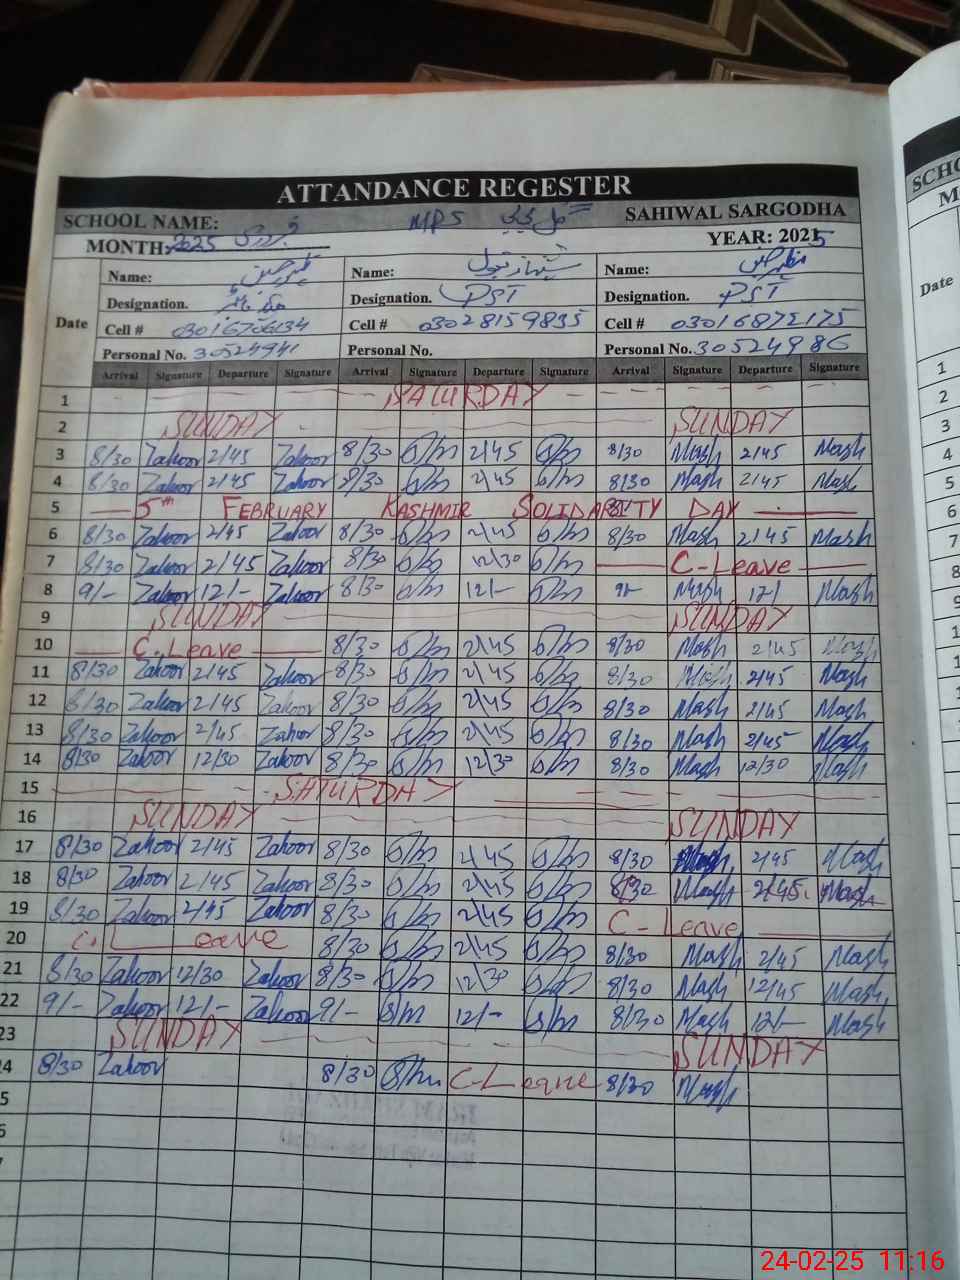 ATTANDANCE REGESTER
SCHOOL NAME: MPS SAHIWAL SARGODHA
MONTH: 2025 فروری YEAR: 2025
Name: ظہور حسین Name: شہناز بتول Name: مظہر حسین
Designation. Designation. PST Designation. PST
Date Cell # 03016706134 Cell # 03028159835 Cell # 03016872175
Personal No. 30524941 Personal No. Personal No. 30524986
Arrival Signature Departure Signature Arrival Signature Departure Signature Arrival Signature Departure Signature
1 SATURDAY
2 SUNDAY SUNDAY
3 8/30 Zahoor 2/45 Zahoor 8/30 S/m 2/45 S/m 8/30 Mash 2/45 Mash
4 8/30 Zahoor 2/45 Zahoor 8/30 S/m 2/45 S/m 8/30 Mash 2/45 Mash
5 5th FEBRUARY KASHMIR SOLIDARITY DAY
6 8/30 Zahoor 2/45 Zahoor 8/30 S/m 2/45 S/m 8/30 Mash 2/45 Mash
7 8/30 Zahoor 2/45 Zahoor 8/30 S/m 12/30 S/m C-Leave
8 9/- Zahoor 12/- Zahoor 8/30 S/m 12/- S/m 9/- Mash 12/- Mash
9 SUNDAY SUNDAY
10 C.Leave 8/30 S/m 2/45 S/m 8/30 Mash 2/45 Mash
11 8/30 Zahoor 2/45 Zahoor 8/30 S/m 2/45 S/m 8/30 Mash 2/45 Mash
12 8/30 Zahoor 2/45 Zahoor 8/30 S/m 2/45 S/m 8/30 Mash 2/45 Mash
13 8/30 Zahoor 2/45 Zahoor 8/30 S/m 2/45 S/m 8/30 Mash 2/45 Mash
14 8/30 Zahoor 12/30 Zahoor 8/30 S/m 12/30 S/m 8/30 Mash 12/30 Mash
15 SATURDAY
16 SUNDAY SUNDAY
17 8/30 Zahoor 2/45 Zahoor 8/30 S/m 2/45 S/m 8/30 Mash 2/45 Mash
18 8/30 Zahoor 2/45 Zahoor 8/30 S/m 2/45 S/m 8/30 Mash 2/45. Mash
19 8/30 Zahoor 2/45 Zahoor 8/30 S/m 2/45 S/m C-Leave
20 C. Leave 8/30 S/m 2/45 S/m 8/30 Mash 2/45 Mash
21 8/30 Zahoor 12/30 Zahoor 8/30 S/m 12/30 S/m 8/30 Mash 12/45 Mash
22 9/- Zahoor 12/- Zahoor 9/- S/m 12/- S/m 8/30 Mash 12/- Mash
23 SUNDAY SUNDAY
24 8/30 Zahoor 8/30 S/m C-Leave 8/30 Mash
5
6
7
SCHO
M
Date
1
2
3
4
5
6
7
8
9
24-02-25 11:16